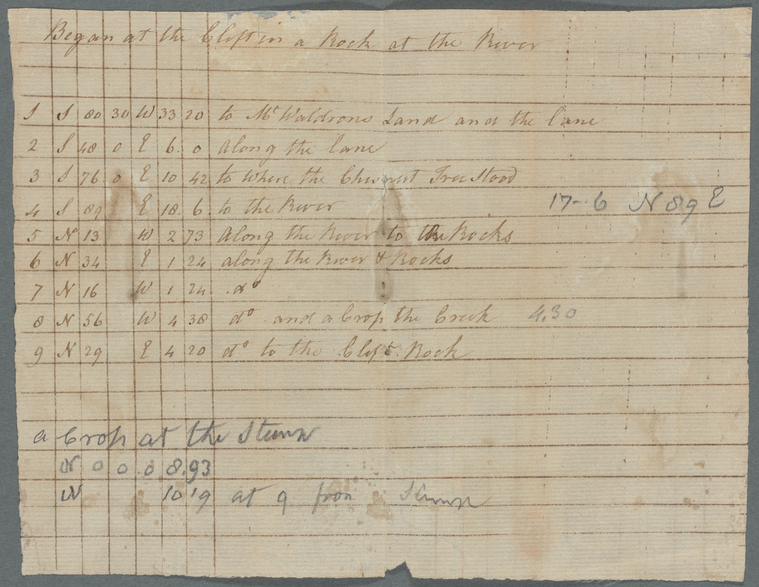 Began at the Cleft in a Rock at the River
1 S 80 30 W 33 20 to Mr Waldrons Land and the lane
2 S 48 0 E 6 0 along the lane
3 S 76 0 E 10 42 to where the Chesnut Tree Stood
4 S 89 E 18 6 to the River 17-6 N 89 E
5 N 13 W 2 73 Along the River to the Rocks
6 N 34 E 1 24 along the River & Rocks
7 N 16 W 1 24 do
8 N 56 W 4 38 do and a Cross the Creek 4.30
9 N 29 E 4 20 do to the Cleft Rock
a Cross at the Stump
N 0 0 0 8.93
N 10 19 at 9 from Stump